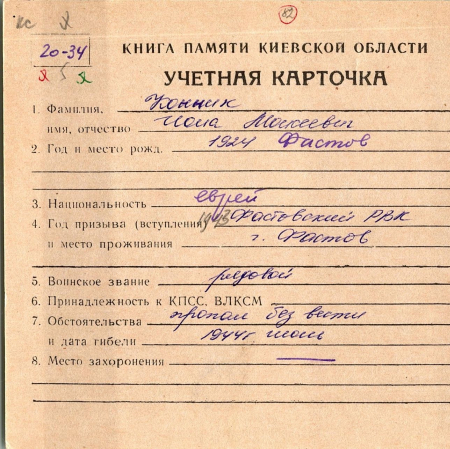 82
20-34
КНИГА ПАМЯТИ КИЕВСКОЙ ОБЛАСТИ
УЧЕТНАЯ КАРТОЧКА
1. Фамилия, Конник
имя, отчество Иона Моисеевич
2. Год и место рожд. 1924 Фастов
3. Национальность еврей
4. Год призыва (вступления) 1943 Фастовский РВК
и место проживания г. Фастов
5. Воинское звание рядовой
6. Принадлежность к КПСС, ВЛКСМ
7. Обстоятельства пропал без вести
и дата гибели 1944г июль
8. Место захоронения